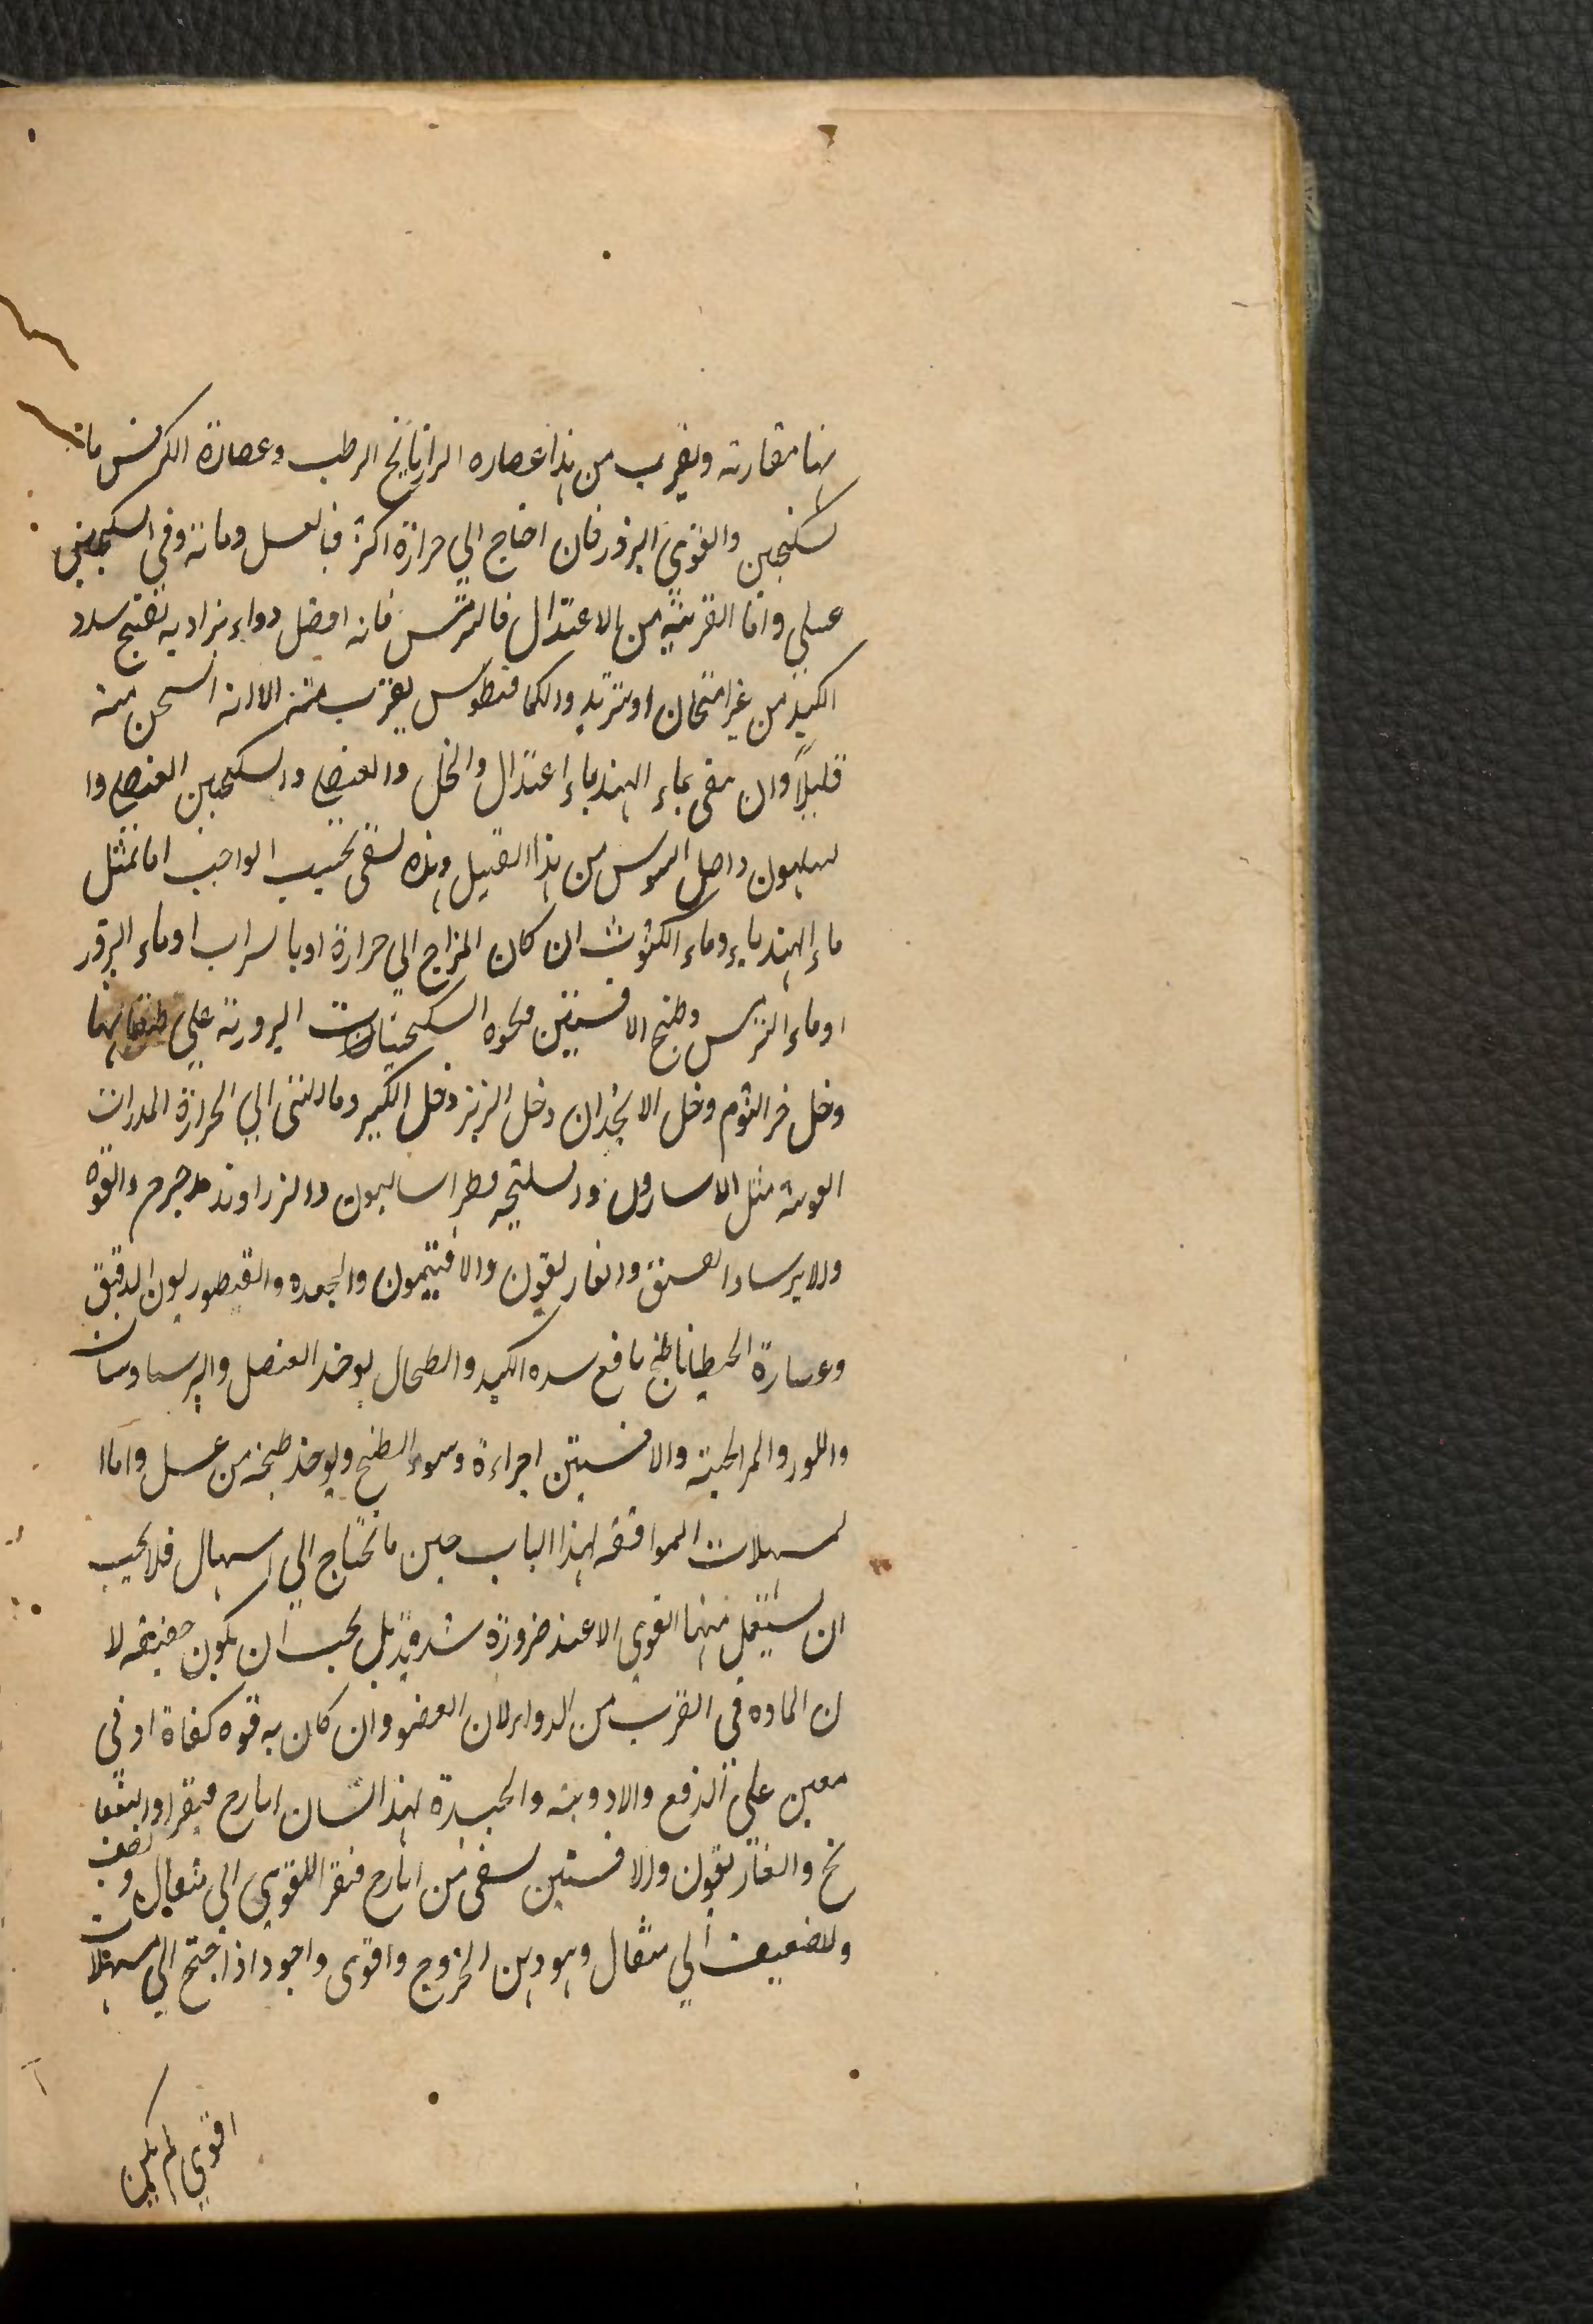 بها مقارنة ويقرب من هذا عصاره الرازيانج الرطب وعصارة الكرفس مات
لسكنجبين والقوي البزور فان احتاج الي حرارة اكثر فبالعسل ومائه وفي السكنجبين
عسلي واما القريبة من الاعتدال فالترمس فانه افضل دواء يراد به تفتيح سدد
الكبد من غير اسخان او تبريد والكمافيطوس يقرب منه الا انه اسخن منه
قليلا وان سقي بماء الهندباء اعتدال والخل والعنصل والسكنجبين العنصلي وا
سليون واصل السوس من هذا القبيل وهذه تسقي بحسب الواجب اما بمثل
ماء الهندباء وماء الكشوث ان كان المزاج الي حرارة او بالشراب او ماء البزور
او ماء الترمس وطبيخ الافسنتين ونحوه السكنجبينات البزورية علي طبقاتها
وخل خمر الثوم وخل الانجدان وخل الزيز وخل الكبر وما التي الي الحرارة المدرات
القويه مثل الاسارون والسليخه وفطراساليون والزراوند مدحرج والفوه
والايرسا والفستق والغاريقون والافتيمون والجعده والقنطوريون الدقيق
وعصارة الجنطيانا طبيخ نافع سده الكبد والطحال يوخذ العنصل والبرسياوسان
واللوز المر الحبة والافسنتين اجزاءة وسواء الطبخ ويوخذ طبيخه من عسل واما ا
لمسهلات الموافقه لهذا الباب حين ما تحتاج الي اسهال فلا يجب
ان يستعمل منها القوي الا عند ضرورة شديدة بل يجب ان يكون خفيفه لا
ن الماده في القرب من الدواء ولان العضو وان كان به قوه كفاة ادني
معين علي الدفع والادويه والجيدة لهذا الشان ايارج فيقرا والبسفا
نج والغاريقون والافسنتين يسقي من ايارج فيقرا للقوي الي مثقال ونصف
وللضعيف الي مثقال وهو دهن الخروع واقوي واجود اذا احتج الي مسهلات
اقوي لم يكن